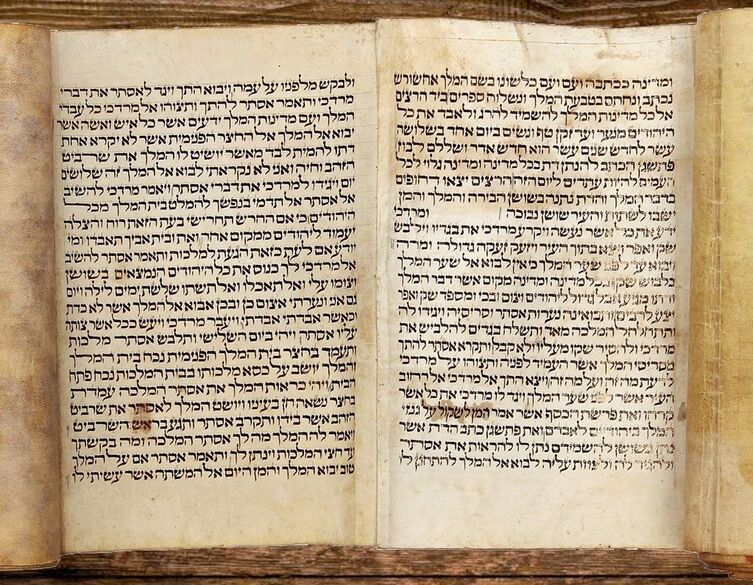 ומדינה ככתבה ועם ועם כלשונו בשם המלך אחשורש
נכתב ונחתם בטבעת המלך ונשלוח ספרים ביד הרצים
אל כל מדינות המלך להשמיד להרג ולאבד את כל
היהודים מנער ועד זקן טף ונשים ביום אחד בשלושה
עשר לחדש שנים עשר הוא חדש אדר ושללם לבוז
פתשגן הכתב להנתן דת בכל מדינה ומדינה גלוי לכל
העמים להיות עתדים ליום הזה הרצים יצאו דחופים
בדבר המלך והדת נתנה בשושן הבירה והמלך והמן
ישבו לשתות והעיר שושן נבוכה ומרדכי
ידע את כל אשר נעשה ויקרע מרדכי את בגדיו וילבש
שק ואפר ויצא בתוך העיר ויזעק זעקה גדולה ומרה
ויבוא עד לפני שער המלך כי אין לבוא אל שער המלך
בלבוש שק ובכל מדינה ומדינה מקום אשר דבר המלך
ודתו מגיע אבל גדול ליהודים וצום ובכי ומספד שק ואפר
יצע לרבים ותבואינה נערות אסתר וסריסיה ויגידו לה
ותתחלחל המלכה מאד ותשלח בגדים להלביש את
מרדכי ולהסיר שקו מעליו ולא קבל ותקרא אסתר להתך
מסריסי המלך אשר העמיד לפניה ותצוהו על מרדכי
לדעת מה זה ועל מה זה ויצא התך אל מרדכי אל רחוב
העיר אשר לפני שער המלך ויגד לו מרדכי את כל אשר
קרהו ואת פרשת הכסף אשר אמר המן לשקול על גנזי
המלך ביהודיים לאבדם ואת פתשגן כתב הדת אשר
נתן בשושן להשמידם נתן לו להראות את אסתר
ולהגיד לה ולצוות עליה לבוא אל המלך להתחנן לו
ולבקש מלפניו על עמה ויבוא התך ויגד לאסתר את דברי
מרדכי ותאמר אסתר להתך ותצוהו אל מרדכי כל עבדי
המלך ועם מדינות המלך ידעים אשר כל איש ואשה אשר
יבוא אל המלך אל החצר הפנימית אשר לא יקרא אחת
דתו להמית לבד מאשר יושיט לו המלך את שרביט
הזהב וחיה ואני לא נקראתי לבוא אל המלך זה שלושים
יום ויגידו למרדכי את דברי אסתר ויאמר מרדכי להשיב
אל אסתר אל תדמי בנפשך להמלט בית המלך מכל
היהודים כי אם החרש תחרישי בעת הזאת רוח והצלה
יעמוד ליהודים ממקום אחר ואת ובית אביך תאבדו ומי
יודע אם לעת כזאת הגעת למלכות ותאמר אסתר להשיב
אל מרדכי לך כנוס את כל היהודים הנמצאים בשושן
וצומו עלי ואל תאכלו ואל תשתו שלשת ימים לילה ויום
גם אני ונערתי אצום כן ובכן אבוא אל המלך אשר לא כדת
וכאשר אבדתי אבדתי ויעבר מרדכי ויעש ככל אשר צותה
עליו אסתר ויהי ביום השלישי ותלבש אסתר מלכות
ותעמד בחצר בית המלך הפנימית נכח בית המלך
והמלך יושב על כסא מלכותו בבית המלכות נכח פתח
הבית ויהי כראות המלך את אסתר המלכה עמדת
בחצר נשאה חן בעיניו ויושט המלך לאסתר את שרביט
הזהב אשר בידו ותקרב אסתר ותגע בראש השרביט
ויאמר לה המלך מה לך אסתר המלכה ומה בקשתך
עד חצי המלכות וינתן לך ותאמר אסתר אם על המלך
טוב יבוא המלך והמן היום אל המשתה אשר עשיתי לו